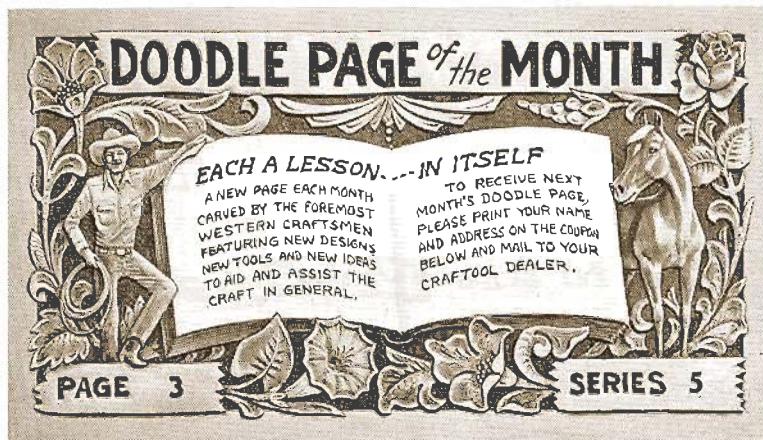 DOODLE PAGE of the MONTH
EACH A LESSON....IN ITSELF
A NEW PAGE EACH MONTH
CARVED BY THE FOREMOST
WESTERN CRAFTSMEN
FEATURING NEW DESIGNS
NEW TOOLS AND NEW IDEAS
TO AID AND ASSIST THE
CRAFT IN GENERAL.
TO RECEIVE NEXT
MONTH'S DOODLE PAGE,
PLEASE PRINT YOUR NAME
AND ADDRESS ON THE COUPON
BELOW AND MAIL TO YOUR
CRAFTOOL DEALER.
PAGE 3
SERIES 5